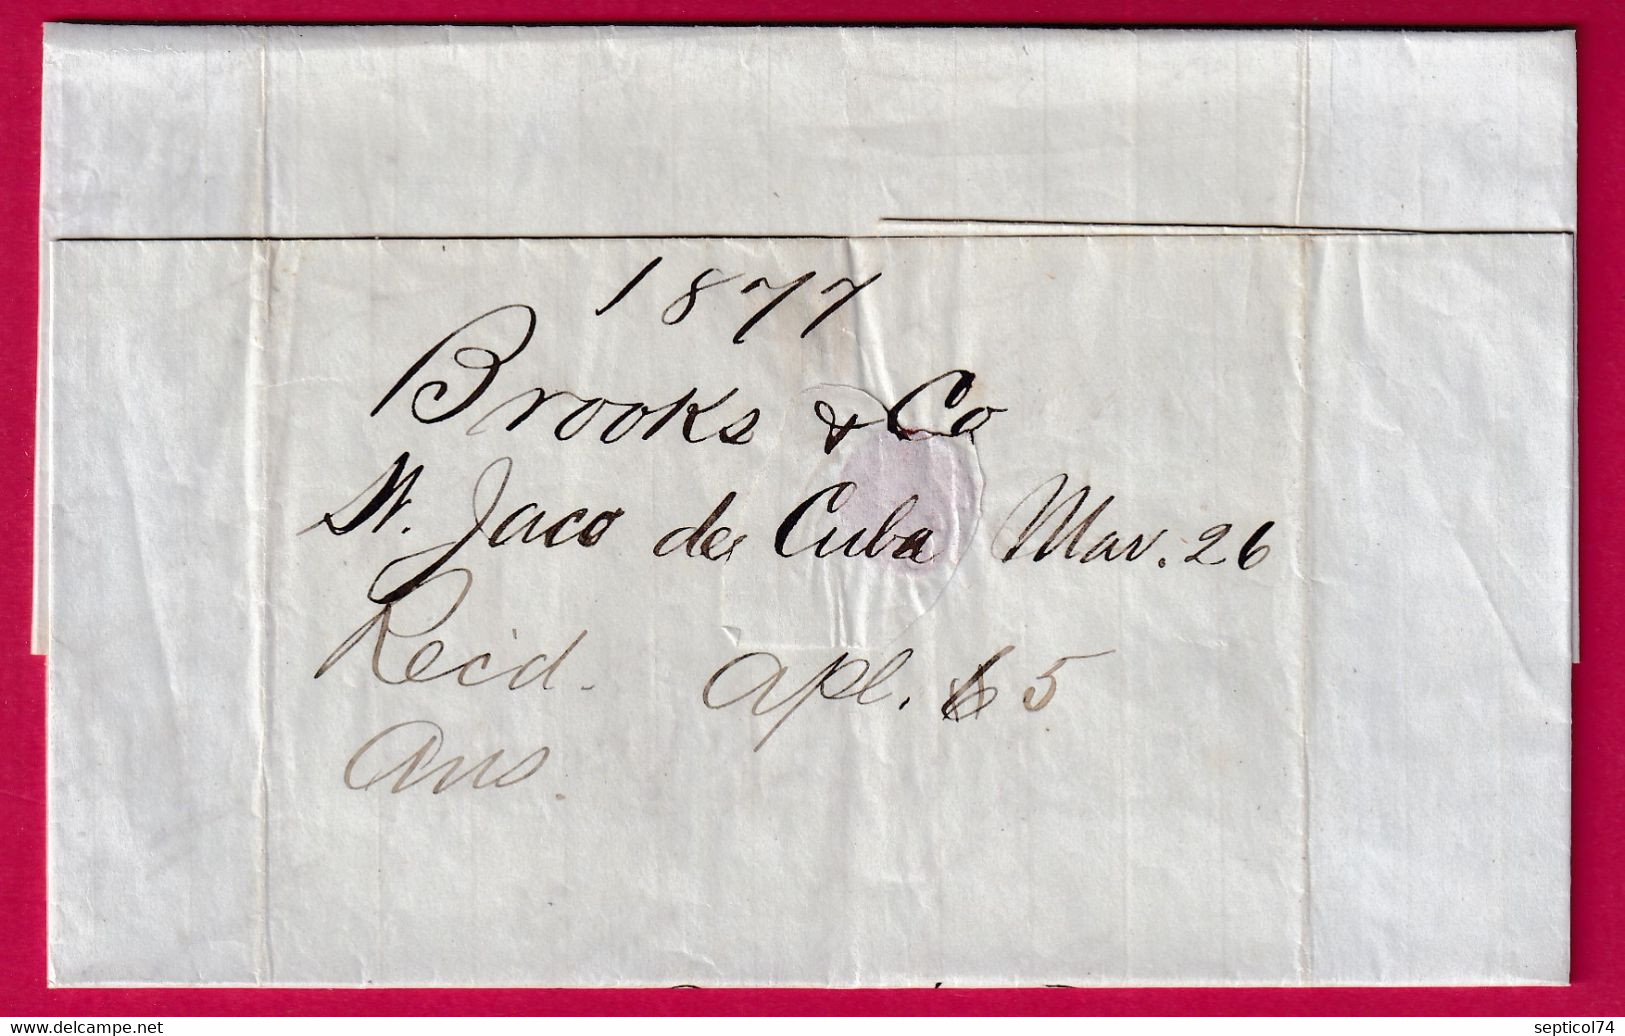 1877
Brooks & Co
St. Jaco de Cuba Mar. 26
Recd. Apl. 6 5
Ans.
delcampe.net
septicol74